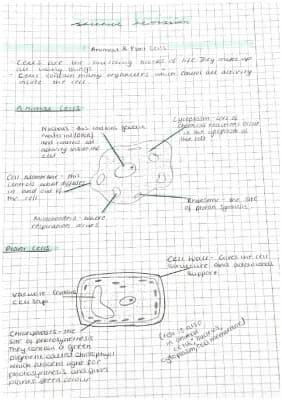 science revision
Animal & Plant Cells
- Cells are the building blocks of life. They make up
all living things.
- Cells contain many organelles which control all activity
inside the cell.
Animal Cells
Nucleus - this contains genetic
material (DNA)
and controls all
activity inside the
cell
Cytoplasm -
chemical reactions occur
in the cytoplasm of
the cell
Cell Membrane - this
controls what
in and out of
the cell
Mitochondria - where
respiration occurs
Ribosome - the site
of protein synthesis
Plant Cells
Cell Wall - Gives the cell
structure and additional
support.
Vacuole - contains
cell sap
Chloroplasts - the
site of photosynthesis
They contain a green
pigment called chlorophyll
which absorbs light for
photosynthesis and gives
plants green colour
is also
cells, nucleus,
cytoplasm, membrane)